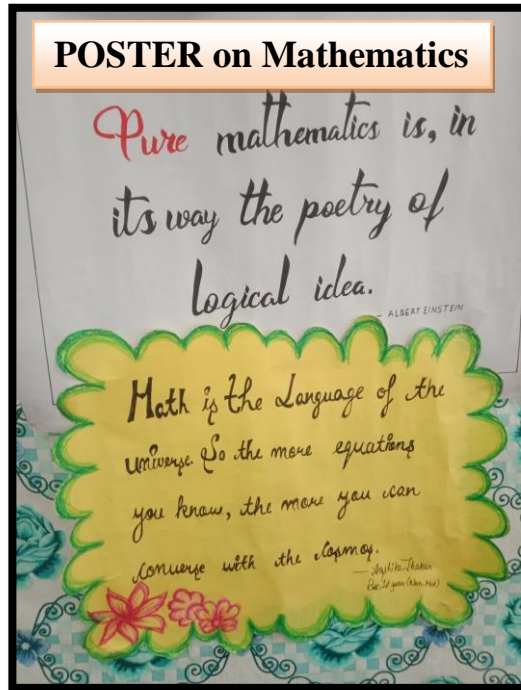 POSTER on Mathematics
Pure mathematics is, in
its way the poetry of
logical idea.
- ALBERT EINSTEIN
Math is the Language of the
universe. So the more equations
you know, the more you can
converse with the cosmos.
Thakur